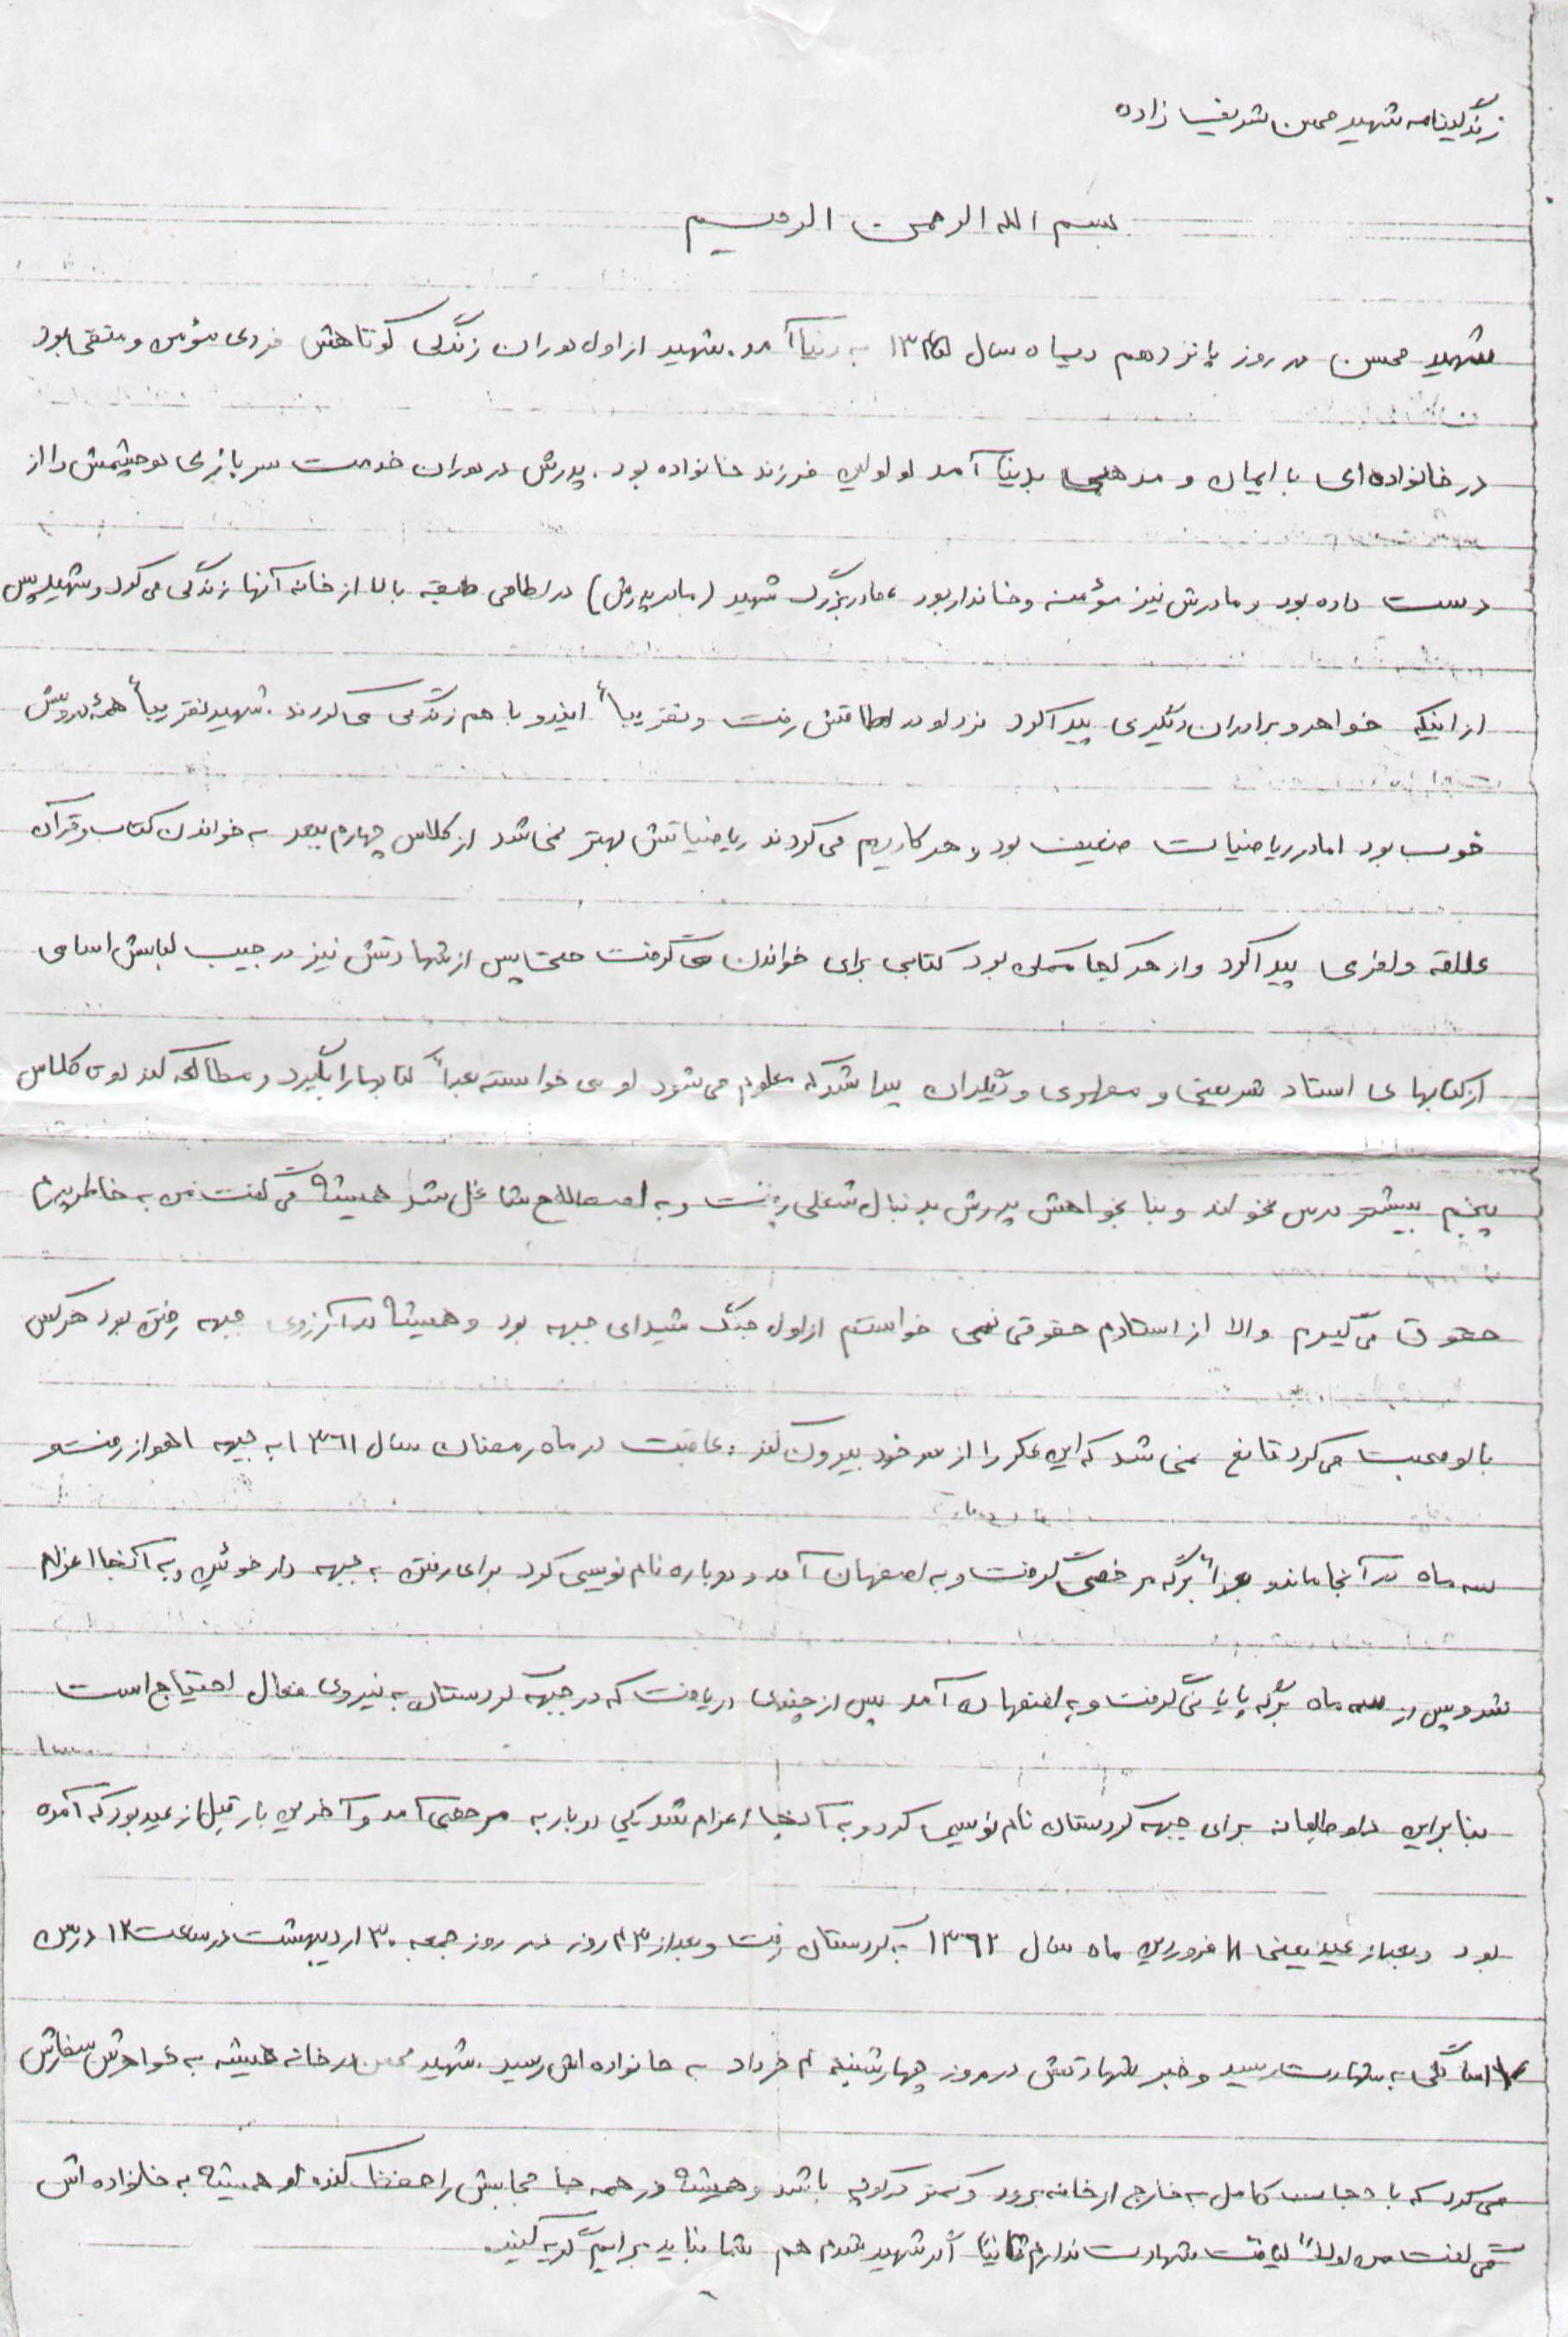 زندگینامه شهید محسن شریف زاده
بسم الله الرحمن الرحیم
شهید محسن در روز پانزدهم دیماه سال ۱۳۴۵ به دنیا آمد. شهید از اول دوران زندگی کوتاهش فردی مؤمن و متقی بود
در خانواده ای با ایمان و مذهبی بدنیا آمد او اولین فرزند خانواده بود. پدرش در دوران خدمت سربازی دو چشمش را از
دست داده بود و مادرش نیز مؤمنه و خانه‌دار بود، مادربزرگ شهید (مادر پدرش) در اطاقی طبقه بالا از خانه آنها زندگی می کرد و شهید پس
از اینکه خواهر و برادران دیگری پیدا کرد نزد او در اطاقش رفت و تقریباً ایندو با هم زندگی می کردند. شهید تقریباً همهٔ دروسش
خوب بود اما در ریاضیات ضعیف بود و هر کاریهم می کردند ریاضیاتش بهتر نمی شد از کلاس چهارم ببعد به خواندن کتاب و قرآن
علاقه وافری پیدا کرد و از هر کجا ممکن بود کتابی برای خواندن می گرفت حتی پس از شهادتش نیز در جیب لباسش اسامی
از کتابهای استاد شریعتی و مطهری و دیگران پیدا شد که معلوم می شود او می خواسته بعداً کتابها را بگیرد و مطالعه کند او تا کلاس
پنجم بیشتر درس نخواند و بنا بخواهش پدرش بدنبال شغلی رفت و به اصطلاح شاغل شد همیشه می گفت من به خاطر پدرم
حقوق می گیرم والا از استادم حقوقی نمی خواستم از اول جنگ شیدای جبهه بود و همیشه در آرزوی جبهه رفتن بود هر کس
با او صحبت می کرد قانع نمی شد که این فکر را از سر خود بیرون کند. عاقبت در ماه رمضان سال ۱۳۶۱ به جبهه اهواز رفت و
سه ماه در آنجا ماند و بعداً برگه مرخصی گرفت و به اصفهان آمد و دوباره نام نویسی کرد برای رفتن به جبهه دارخوئین و به آنجا اعزام
شد و پس از سه ماه برگه پایانی گرفت و به اصفهان آمد پس از چندی دریافت که در جبهه کردستان به نیروی فعال احتیاج است
بنابراین داوطلبانه برای جبهه کردستان نام نویسی کرد و به آنجا اعزام شد یکی دوبار به مرخصی آمد و آخرین بار قبل از عید بود که آمده
بود و بعد از عید یعنی ۱۸ فروردین ماه سال ۱۳۶۲ به کردستان رفت و بعد از ۴۳ روز در روز جمعه ۳۰ اردیبهشت در ساعت ۱۲ در سن
۱۷ سالگی به شهادت رسید و خبر شهادتش در روز چهارشنبه ۴ خرداد به خانواده اش رسید. شهید محسن در خانه همیشه به خواهرش سفارش
می کرد که با حجاب کامل به خارج از خانه برود و کمتر در کوچه باشد و همیشه در همه جا حجابش را حفظ کند. او همیشه به خانواده اش
می گفت من اولاً لیاقت شهادت ندارم ثانیاً اگر شهید شدم هم شما نباید برایم گریه کنید.